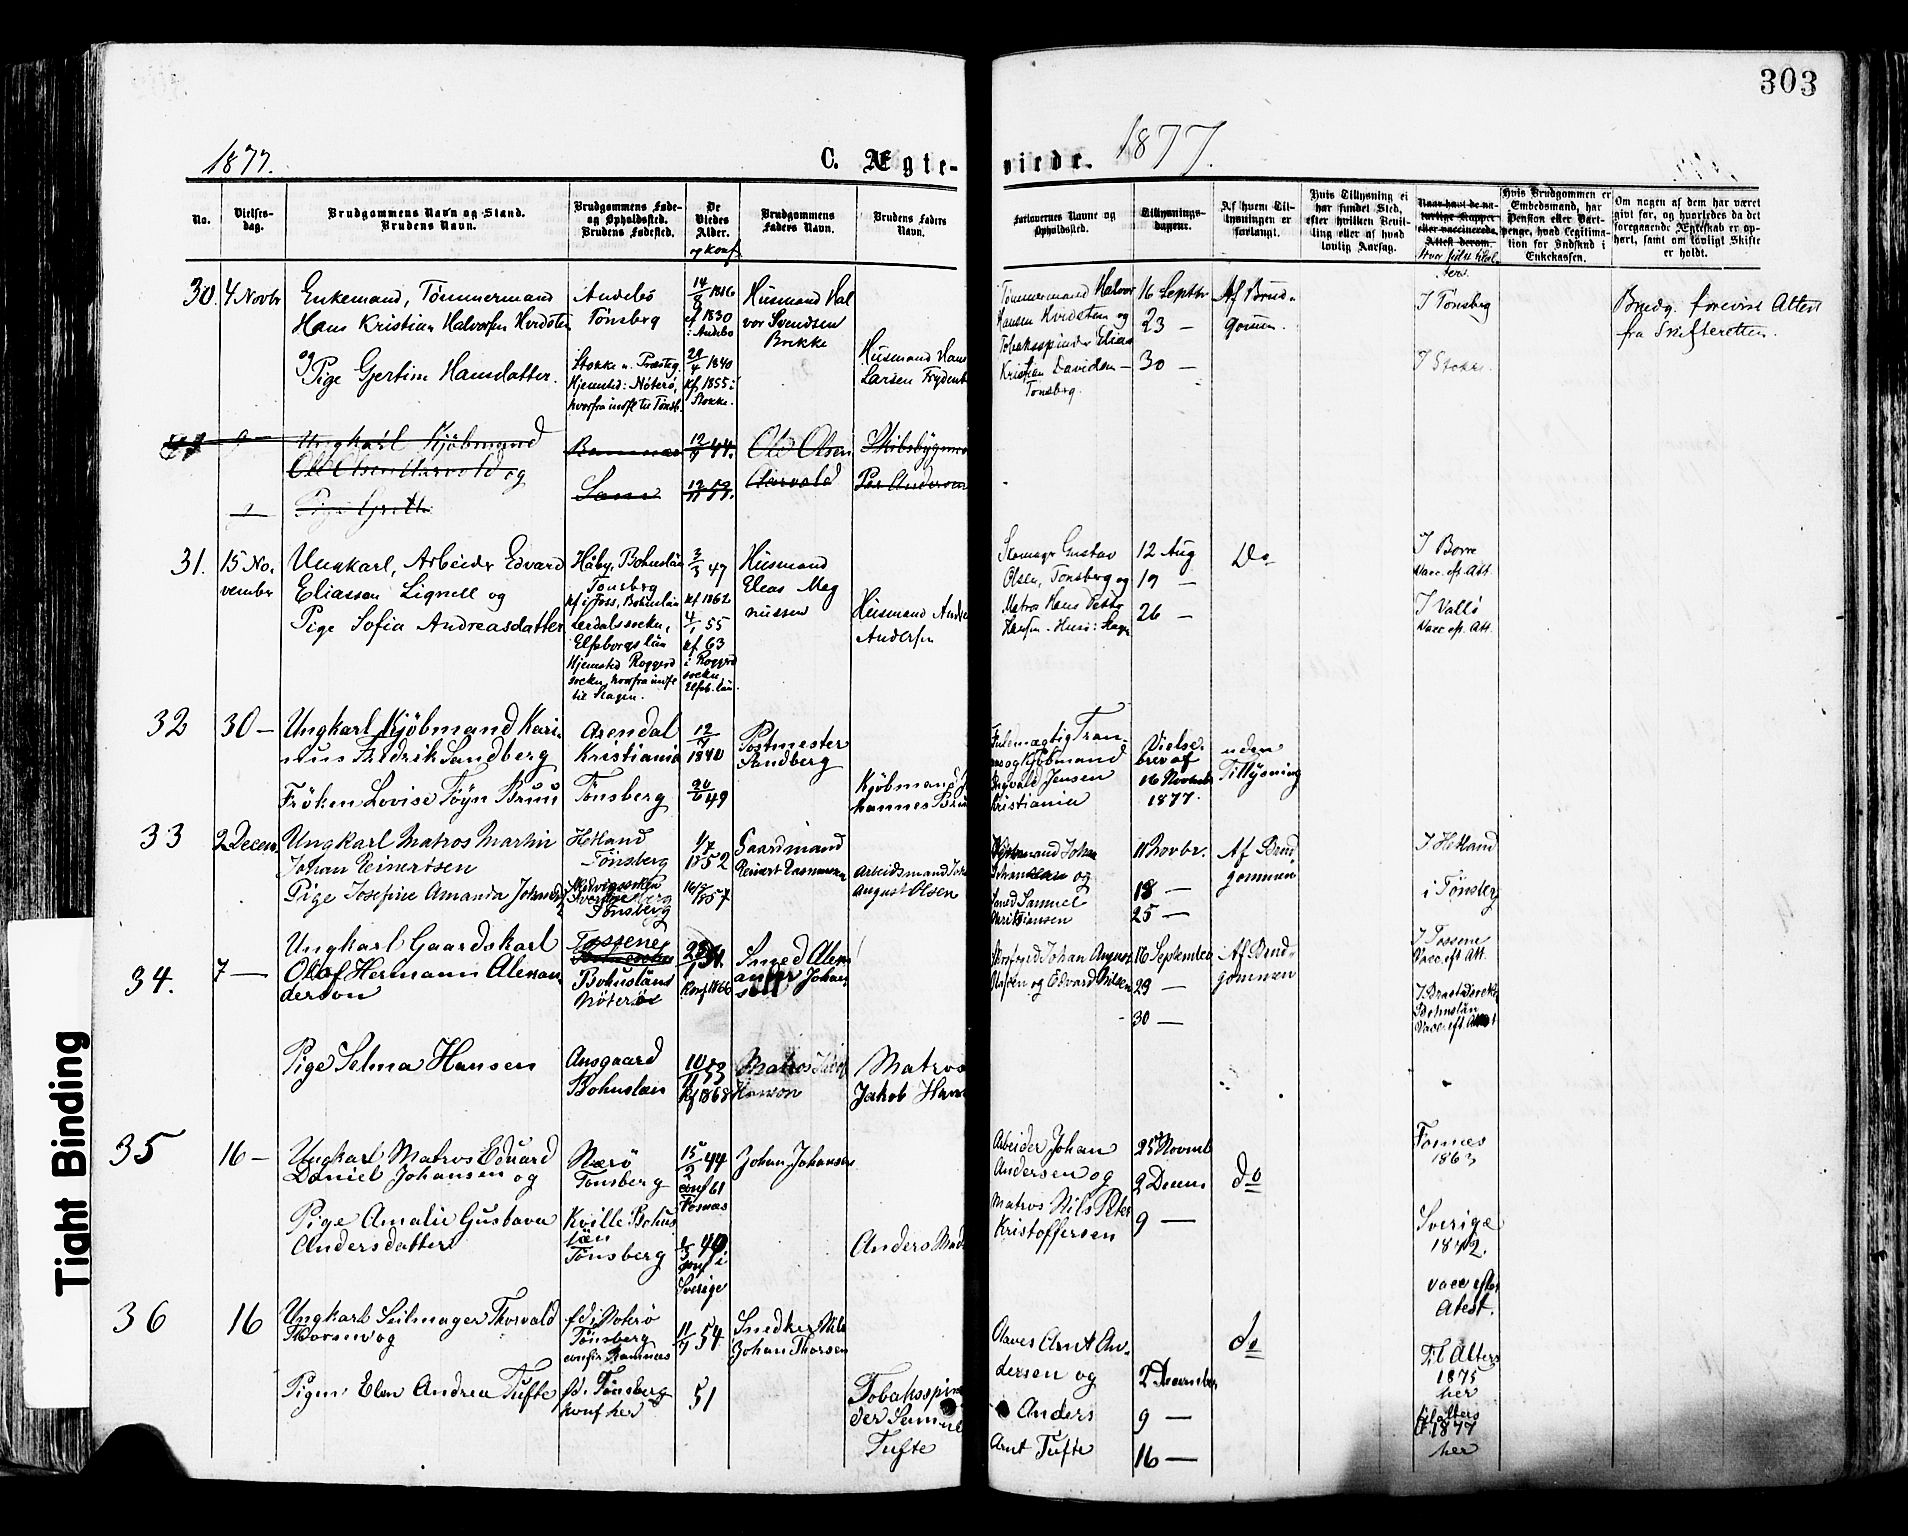 303
1877.
C. Ægte-
viede.
1877.
No.
Vielses-
dag.
Brudgommens Navn og Stand.
Brudens Navn.
Brudgommens Føde-
og Opholdssted.
Brudens Fødested.
De
Viedes
Alder.
og konf.
Brudgommens
Faders Navn.
Brudens Faders
Navn.
Forlovernes Navne og
Opholdssted.
Tillysnings-
dagene.
Af hvem Til-
lysningen er
forlangt.
Hvis Tillysning ei
har fundet Sted,
efter hvilken Bevil-
ling eller af hvad
lovlig Aarsag.
Naar havt de na-
turlige Kopper
eller vaccinerede.
Attest derom.
Hvis Brudgommen er
Embedsmand, har
Pension eller Vart-
penge, hvad Legitima-
tion for Indskud i
Enkekassen.
Om nogen af dem har været
givt før, og hvorledes da det
foregaaende Ægteskab er op-
hørt, samt om lovligt Skifte
er holdt.
30. 4 Novbr
Enkemand, Tømmermand
Hans Kristian Halvorsen Hvidsten
og
Pige Gjertine Hansdatter.
Andebo
Tønsberg
Stokke n. Præsteg.
Hjemsted: Nøterø,
hvorfra indfl. til Tønsb.
14/8 1816
kf 1830
i Andebo
29/4 1840
kf 1855 i
Stokke.
Husmand Hal
vor Svendsen
Brekke
Husmand Hans
Larsen
Tømmermand Halvor
Hansen Hvidsten og
Tobaksspinder Elias
Kristian Davidsen -
Tønsberg.
16 Septbr
23 —
30 —
Af Brud-
gommen.
I Tønsberg
I Stokke.
Brudg. foreviste Attest
fra Skifteretten.
Ungkarl Kjøbmand
Ole Olsen Aarvold og
12/9 44.
Ole Olsen
Aarvold
Skibsbygmes
Per Andersen
31. 15 No-
vember
Ungkarl, Arbeider Edvard
Eliassen Lignell og
Pige Sofia Andreasdatter
Håby, Bohuslän
Tønsberg
kf i Foss, Bohuslän
Lerdalssocken,
Elfsborgs län
Hjemsted Roggerd
socken, hvorfra indfl
til Slagen.
3/3 47
kf 1862
4/1 55
kf 63
i Roggerd
socken
Elfsb. län.
Husmand
Eleas Mag
nussen
Husmand Andreas
Andersen
Skomager Gustav
Olsen, Tønsberg og
Matros Hans Petter
Hansen - Husø i Slagen
12 Aug
19 —
26 —
Do
I Borre
Vacc. eft. Att.
I Vallö
Vacc. eft. Att.
32 30 —
Ungkarl Kjøbmand Kari-
nus Fredrik Sandberg
Frøken Lovise Føyn Bruun
Arendal
Kristiania
Tønsberg
12/7
1840
20/6 49
Postmester
Sandberg
Kjøbmand Jo
hannes Bruun
Fuldmægtig
og Kjøbmand
Ingvald Jensen
Kristiania
Vielse-
brev af
16 Novembr
1877.
uden
Tillysning
33 2 Decem.
Ungkarl Matros Martin
Johan Reinertsen
Pige Josefine Amanda Johansd
Hetland
Tønsberg
Hedvigssocken
Sverige
Tønsberg
1/7
1852
1857
Gaardmand
Reinert Rasmussen
Arbeidsmand Joh
August Olsen
Johan
Johansen og
Smed Samuel
Christiansen
11 Novbr.
18 —
25 —
Af Brud-
gommen
I Hetland
i Tønsberg
34. 7 —
Ungkarl Gaardskarl
Olaf Hermann Alexan-
derson
Pige Selma Hansen
Tossene
Bohusläns
Nøterøe
Aasgaard
Bohuslän
Konf 1866
10/11 53
kf 1868
Smed Alex
ander Johan
sen
Matros Jakob
Hanson
Matros
Jakob Hans
Johan August
Olassen og Edvard Nilsen
16 September
23 —
30 —
Af Brud-
gommen
I Tossene
Vacc. eft Att.
Bohuslän
Vacc. eft Att
35 16 —
Ungkarl Matros Eduard
Daniel Johansen og
Pige Amalie Gustava
Andersdatter
Nærö
Tønsberg
Kville Bohus
län
Tønsberg
15/2 44
conf 61
Fosnæs
1/3 49.
conf i
Sverige
Johan Johansen
Anders
Arbeider Johan
Andersen og
Matros Nils Peter
Kristoffersen
25 Novemb
2 Decem.
9 —
do
Fosnæs
1863
Sverige
1872.
vacc efter
Atest.
36 16
Ungkarl Seilmager Thorvald
Thorsen og
Pigen Elen Andrea Tufte
fd i Noterø
Tønsberg
conf i Ramnæs
fd. Tønsberg
konf her
11/9 54.
51
Snedker Nils
Johan Thorsen
Tobaksspin
der Samuel
Tufte
Olaves Arnt An-
dersen og
Anders
Arnt Tufte
2 December
9 —
16 —
do
Til Alters
1875
her
til alters
1877
her
Tight Binding